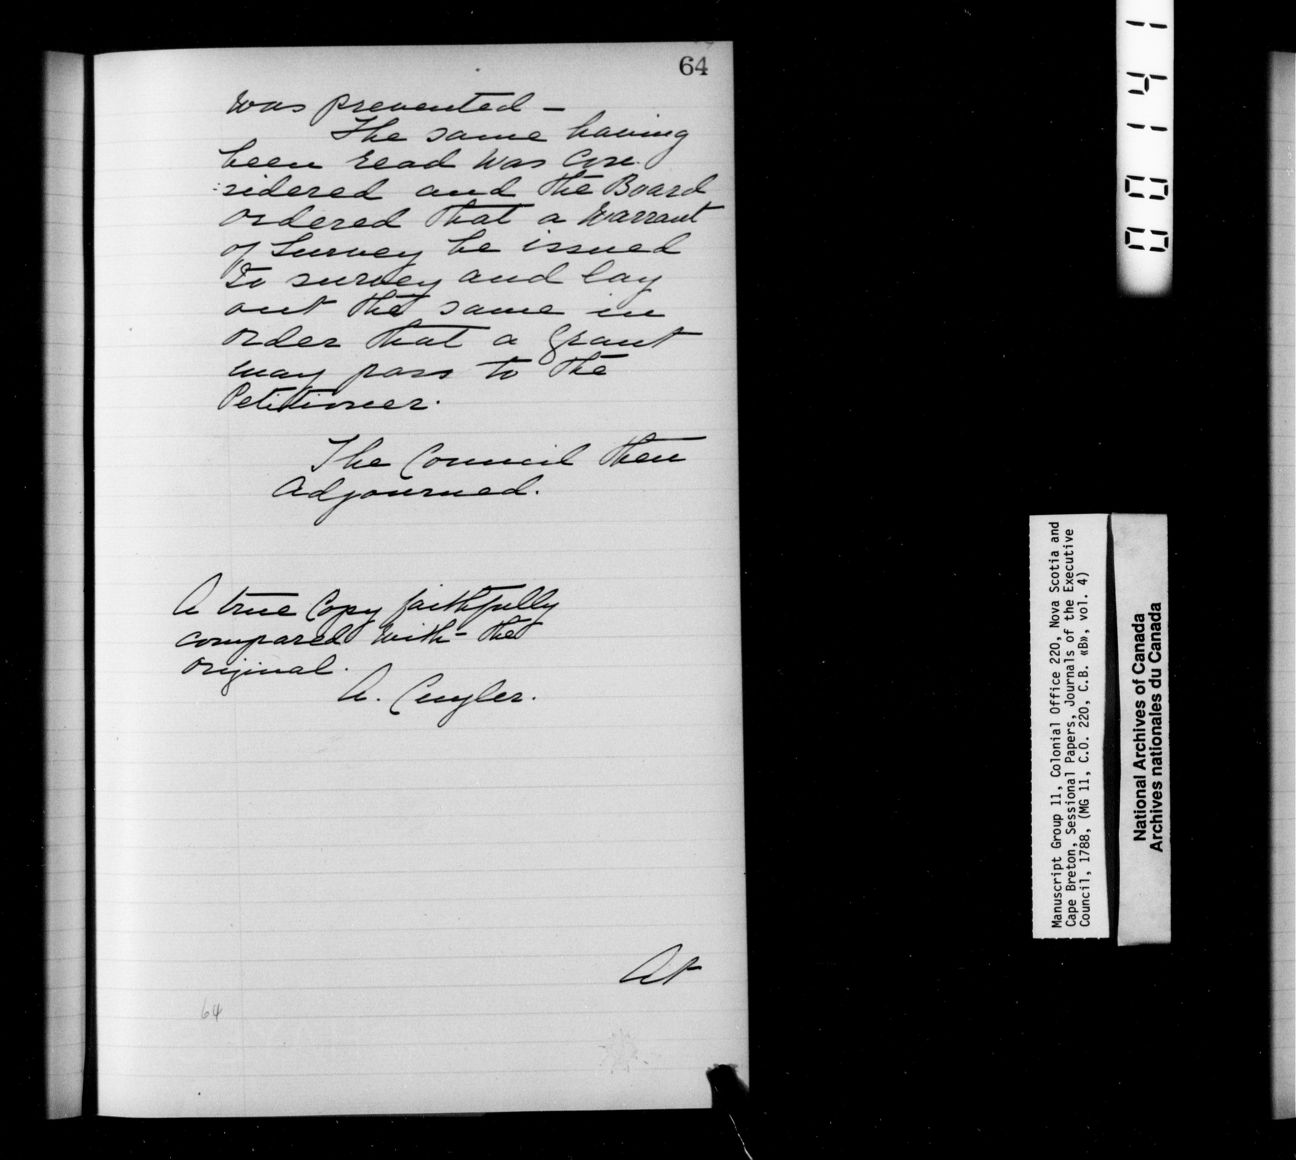 64
was prevented —
The same having
been read was con
:sidered and the Board
ordered that a Warrant
of Survey be issued
to survey and lay
out the same in
order that a Grant
may pass to the
Petitioner.
The Council then
Adjourned.
A true Copy faithfully
compared with the
original.
A. Cuyler.
At
64
00141
Manuscript Group 11, Colonial Office 220, Nova Scotia and
Cape Breton, Sessional Papers, Journals of the Executive
Council, 1788, (MG 11, C.O. 220, C.B. «B», vol. 4)
National Archives of Canada
Archives nationales du Canada